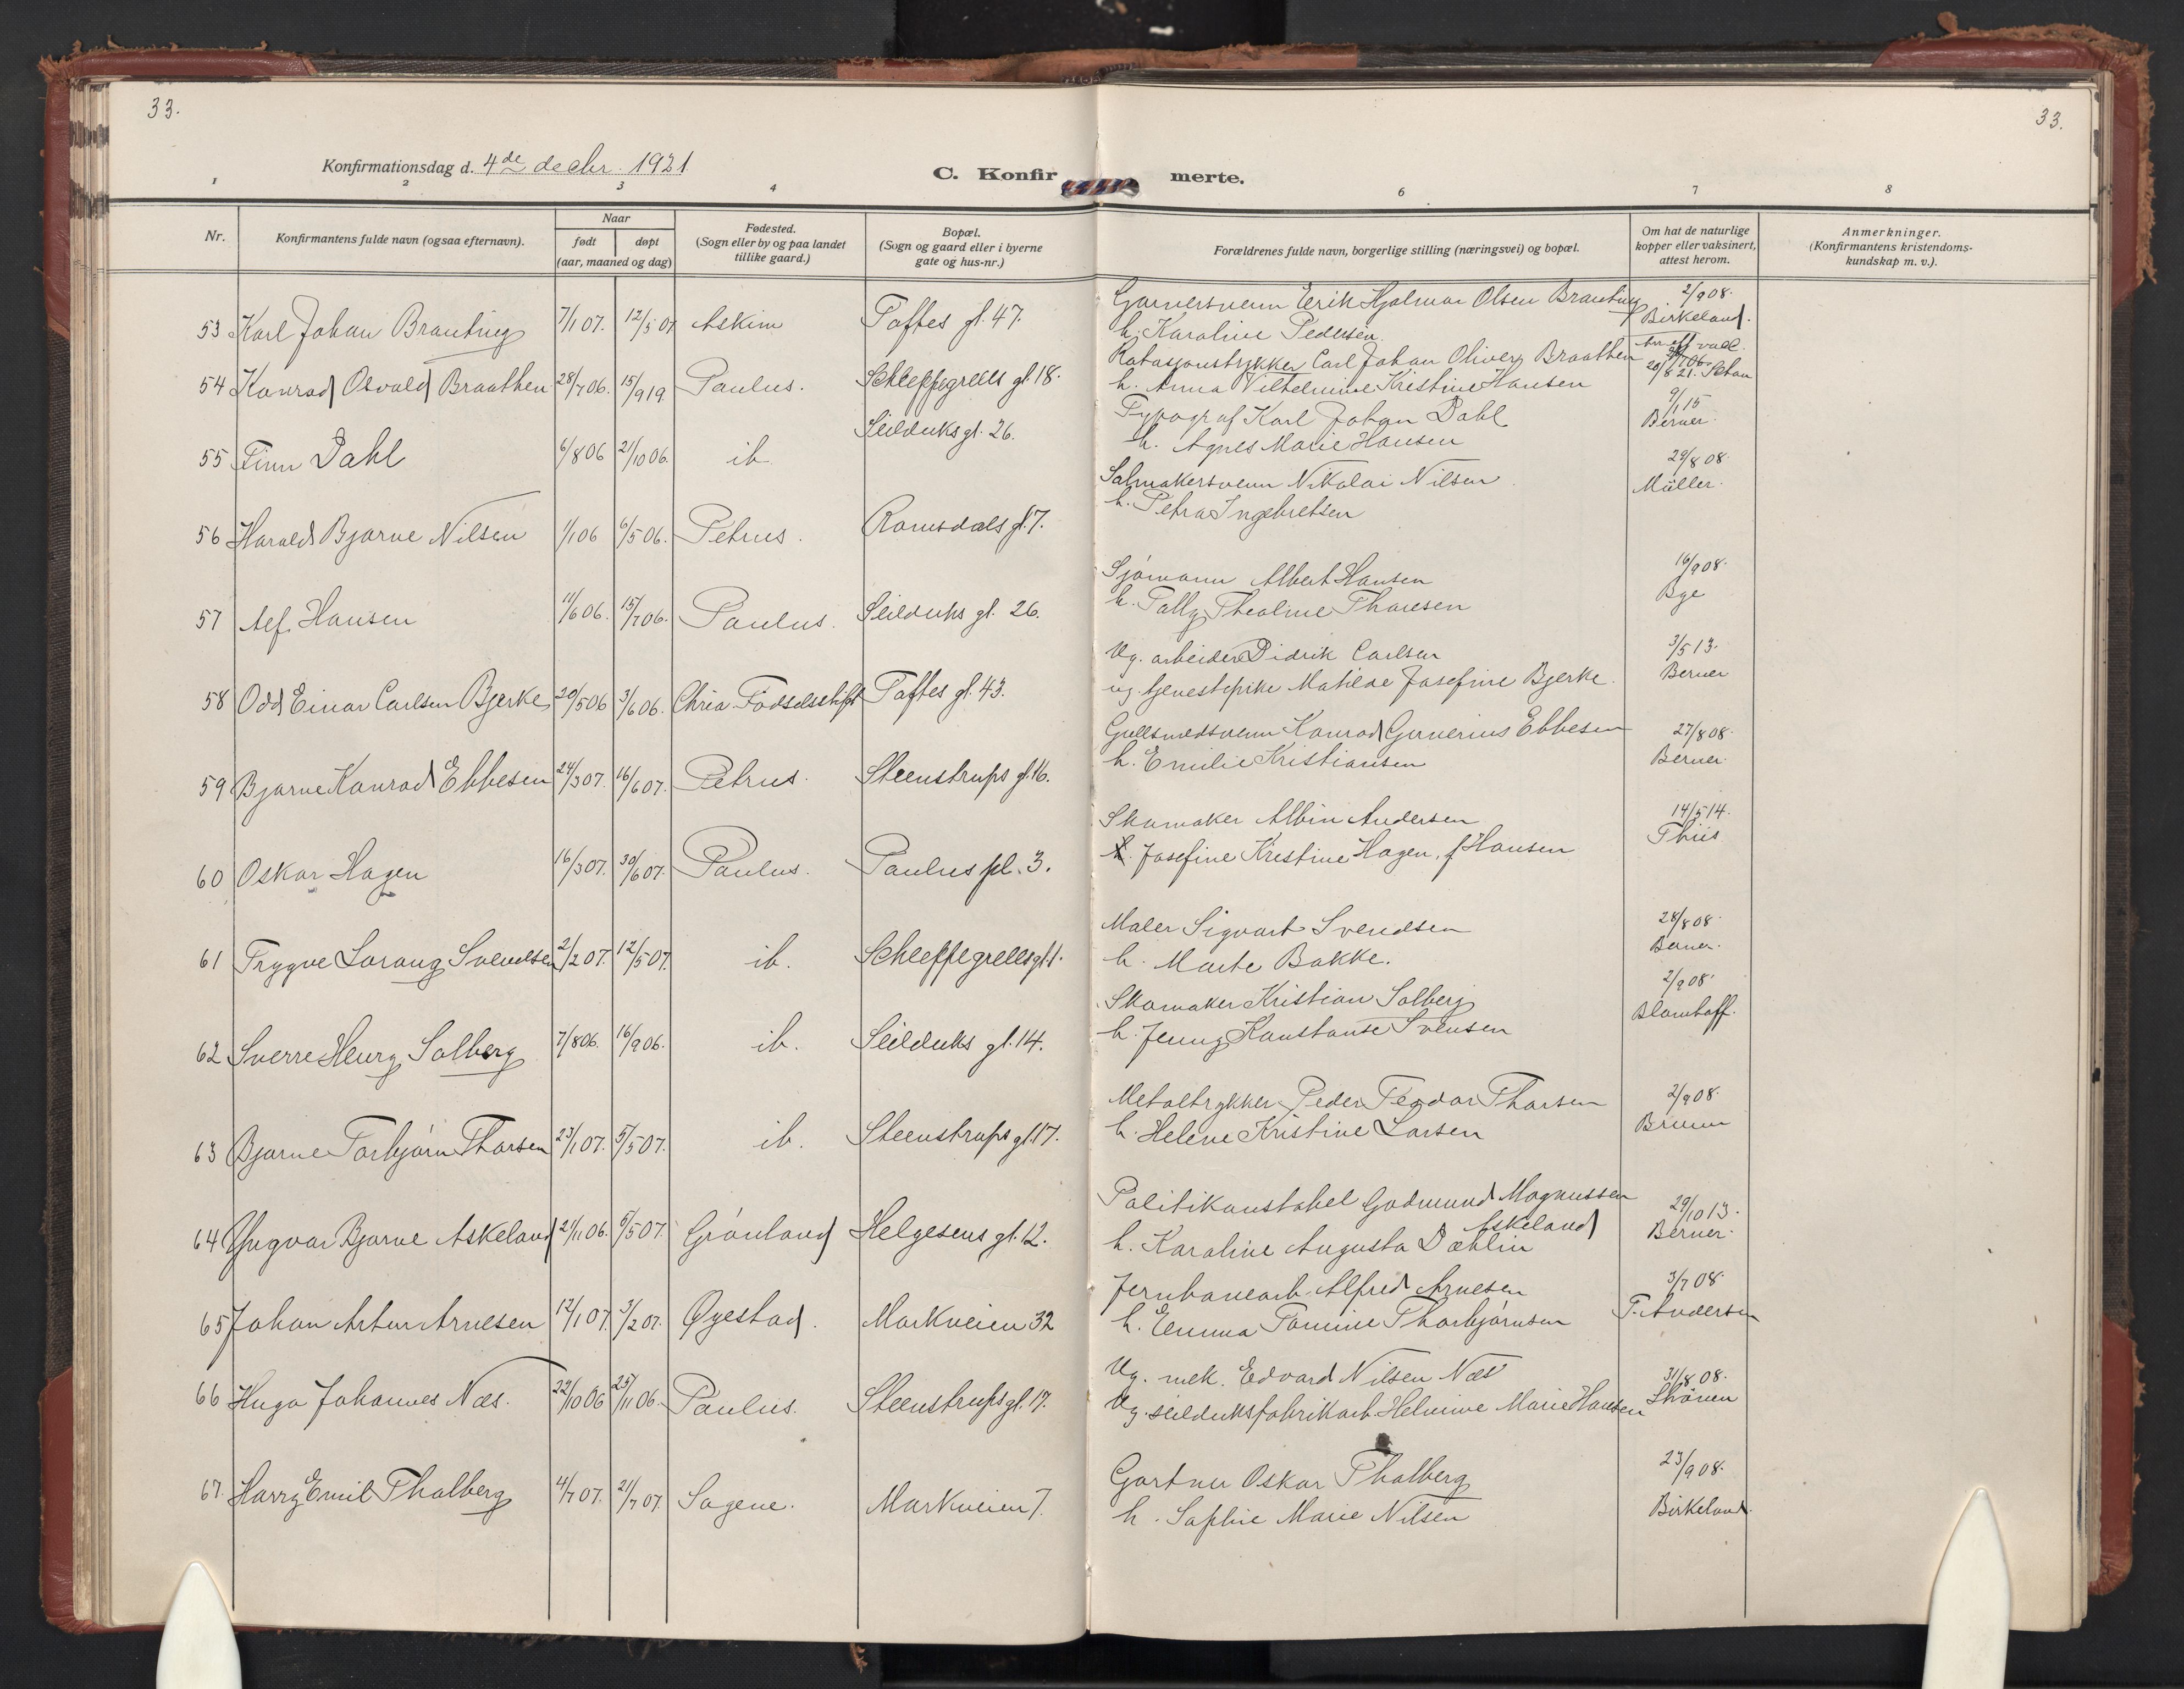 33.
33.
Konfirmationsdag d. 4de decbr. 1921.
C. Konfir merte.
1 2 3 4 6 7 8
Nr.
Konfirmantens fulde navn (ogsaa efternavn).
Naar
født
døpt
(aar, maaned og dag)
Fødested.
(Sogn eller by og paa landet
tillike gaard.)
Bopæl.
(Sogn og gaard eller i byerne
gate og hus-nr.)
Forældrenes fulde navn, borgerlige stilling (næringsvei) og bopæl.
Om hat de naturlige
kopper eller vaksinert,
attest herom.
Anmerkninger.
(Konfirmantens kristendoms-
kundskap m. v.).
53 Karl Johan Branting 7/1 07. 12/5 07 Askim Toftes gt. 47.
Garversvenn Erik Hjalmar Olsen Branting
h. Karoline Pedersen
2/9 08.
Birkeland.
54 Konrad Osvald Braathen 28/7 06. 15/9 19 Paulus. Schleppegrells gt. 18.
Rotasjonstrykker Carl Johan Oliver Braathen
h. Anna Vilhelmine Kristine Hansen
20/8 21.
55 Finn Dahl 6/8 06 21/10 06. ib Seilduks gt. 26.
Typograf Karl Johan Dahl
h. Agnes Marie Hansen
9/1 15
Berner.
56 Harald Bjarne Nilsen 1/1 06 6/5 06. Petrus. Romsdals gt. 7.
Salmakersvenn Nikolai Nilsen
h. Petra Ingebretsen
29/8 08.
Müller.
57 Alf Hansen 11/6 06. 15/7 06. Paulus. Seilduks gt. 26.
Sjømann Albert Hansen
h. Tally Thoresen
16/9 08.
Bye
58 Odd Einar Carlsen Bjerke 20/5 06 3/6 06. Chria. Fødselsstift Toftes gt. 43.
Ug. arbeider Didrik Carlsen
ug. tjenestepike Matilde Josefine Bjerke.
3/5 13.
Berner
59 Bjarne Konrad Ebbesen 24/3 07. 16/6 07. Petrus. Steenstrups gt. 16.
Gullsmedsvenn Konrad Gunerius Ebbesen
h. Emilie Kristiansen
27/8 08.
Berner.
60 Oskar Hagen 16/3 07. 30/6 07. Paulus. Paulus pl. 3.
Skomaker Albin Andersen
Josefine Kristine Hagen, f. Hansen
14/5 14.
Thiis
61 Trygve Lorang Svendsen 2/2 07. 12/5 07. ib. Schleppegrells gt 1.
Maler Sigvart Svendsen
h. Marte Bakke.
28/8 08.
Berner.
62 Sverre Henry Solberg 7/8 06. 16/9 06. ib. Seilduks gt. 14.
Skomaker Kristian Solberg
h. Jenny Konstanse Svensen
2/9 08.
Blomhoff.
63 Bjarne Torbjørn Thorsen 23/1 07. 5/5 07. ib. Steenstrups gt. 17.
Metaltrykker Peder Teodor Thorsen
h. Helene Kristine Larsen
2/9 08.
Bruun
64 Yngvar Bjarne Askeland 21/11 06. 5/5 07. Grønland Helgesens gt. 12.
Politikonstabel Godmund Magnussen
Askeland
h. Karoline Augusta Dæhlin
29/10 13.
Berner.
65 Johan Artur Arnesen 12/1 07. 3/2 07. Øyestad. Markveien 32
Jernbanearb. Alfred Arnesen
h. Emma Tomine Thorbjørnsen
3/7 08.
T. Andersen
66 Hugo Johannes Næs. 22/10 06 25/11 06. Paulus. Steenstrups gt. 17.
Ug. mek. Edvard Nilsen Næs
Ug. seilduksfabrikarb. Helmine Marie Hansen
31/8 08.
67. Harry Emil Tholberg 4/7 07. 21/7 07. Sagene. Markveien 7.
Gartner Oskar Tholberg
h. Sophie Marie Nilsen
23/9 08.
Birkeland.